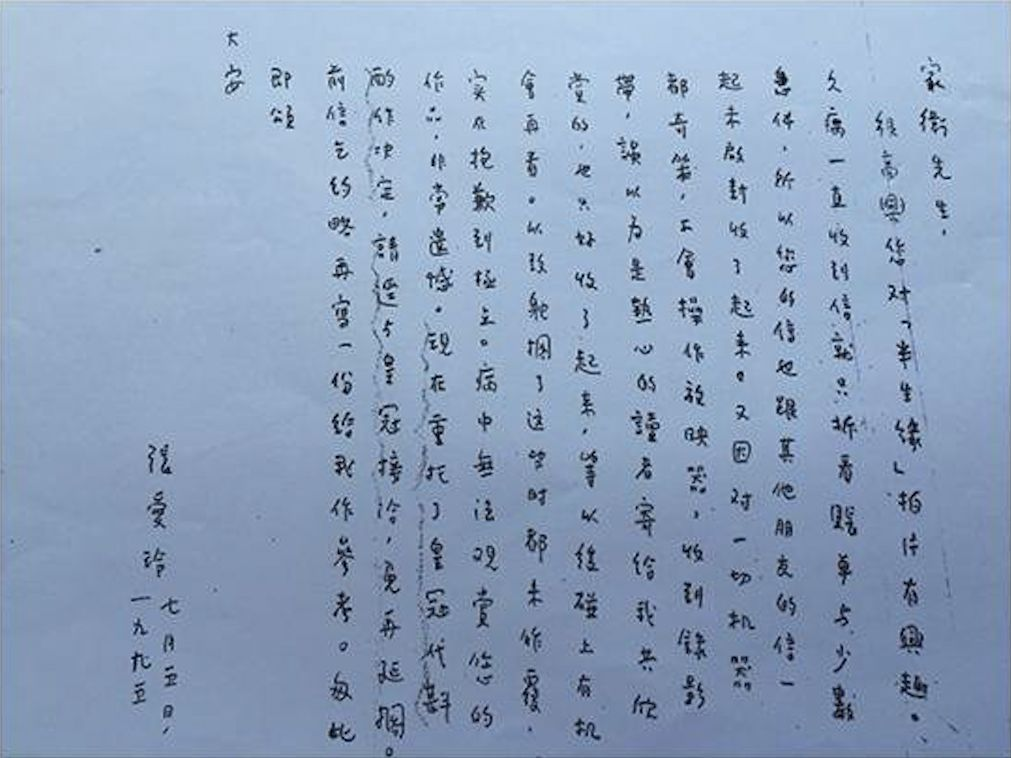 家衛先生,
很高興您对「半生緣」拍片有興趣。
久病一直收到信就只拆看賬单与少數
急件,所以您的信也跟其他朋友的信一
起未啟封收了起來。又因对一切机器
都奇笨,不會操作放映器,收到錄影
帶,誤以为是熱心的讀者寄給我共欣
赏的,也只好收了起来,等以後碰上有机
會再看。以致躭擱了这些时都未作覆,
实在抱歉到極点。病中無法观赏您的
作品,非常遺憾。現在重托了皇冠代斟
酌作決定,請逕与皇冠接洽,免再延擱。
前信乞約略再寫一份給我作參考。匆此
即頌
大安
張愛玲 七月五日,
一九九五